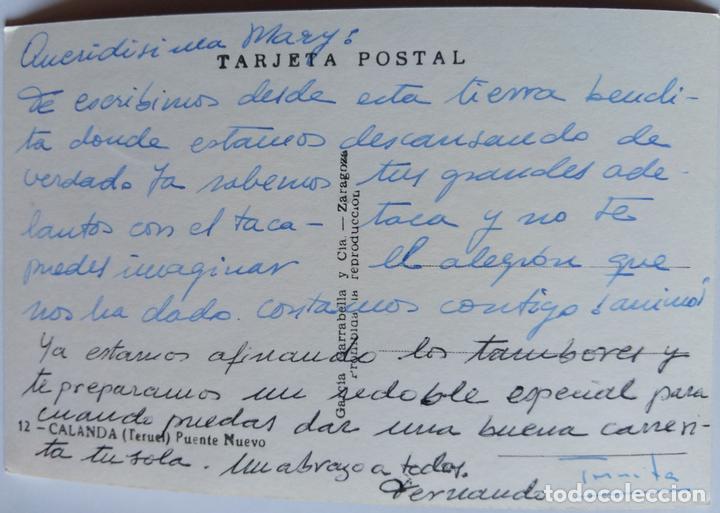 Queridisima Mary:
TARJETA POSTAL
Te escribimos desde esta tierra bendi-
ta donde estamos descansando de
verdad. Ya sabemos tus grandes ade-
lantos con el taca-taca y no te
puedes imaginar el alegrón que
nos ha dado. Contamos contigo ¡animo!
Ya estamos afinando los tambores y
te preparamos un redoble especial para
cuando puedas dar una buena carreri-
12 - CALANDA (Teruel) Puente Nuevo
ta tu sola. Un abrazo a todos.
Fernando
García Garrabella y Cía. - Zaragoza
Prohibida la reproducción
todocoleccion.net